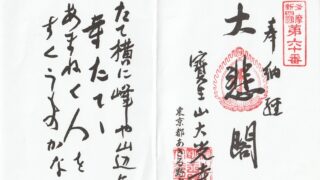 多摩新四国
第六十番
奉納経
大悲閣
大光寺
東京都あきる野
たて横に峰や山辺に
寺たてゝ
あまねく人を
すくうものかな